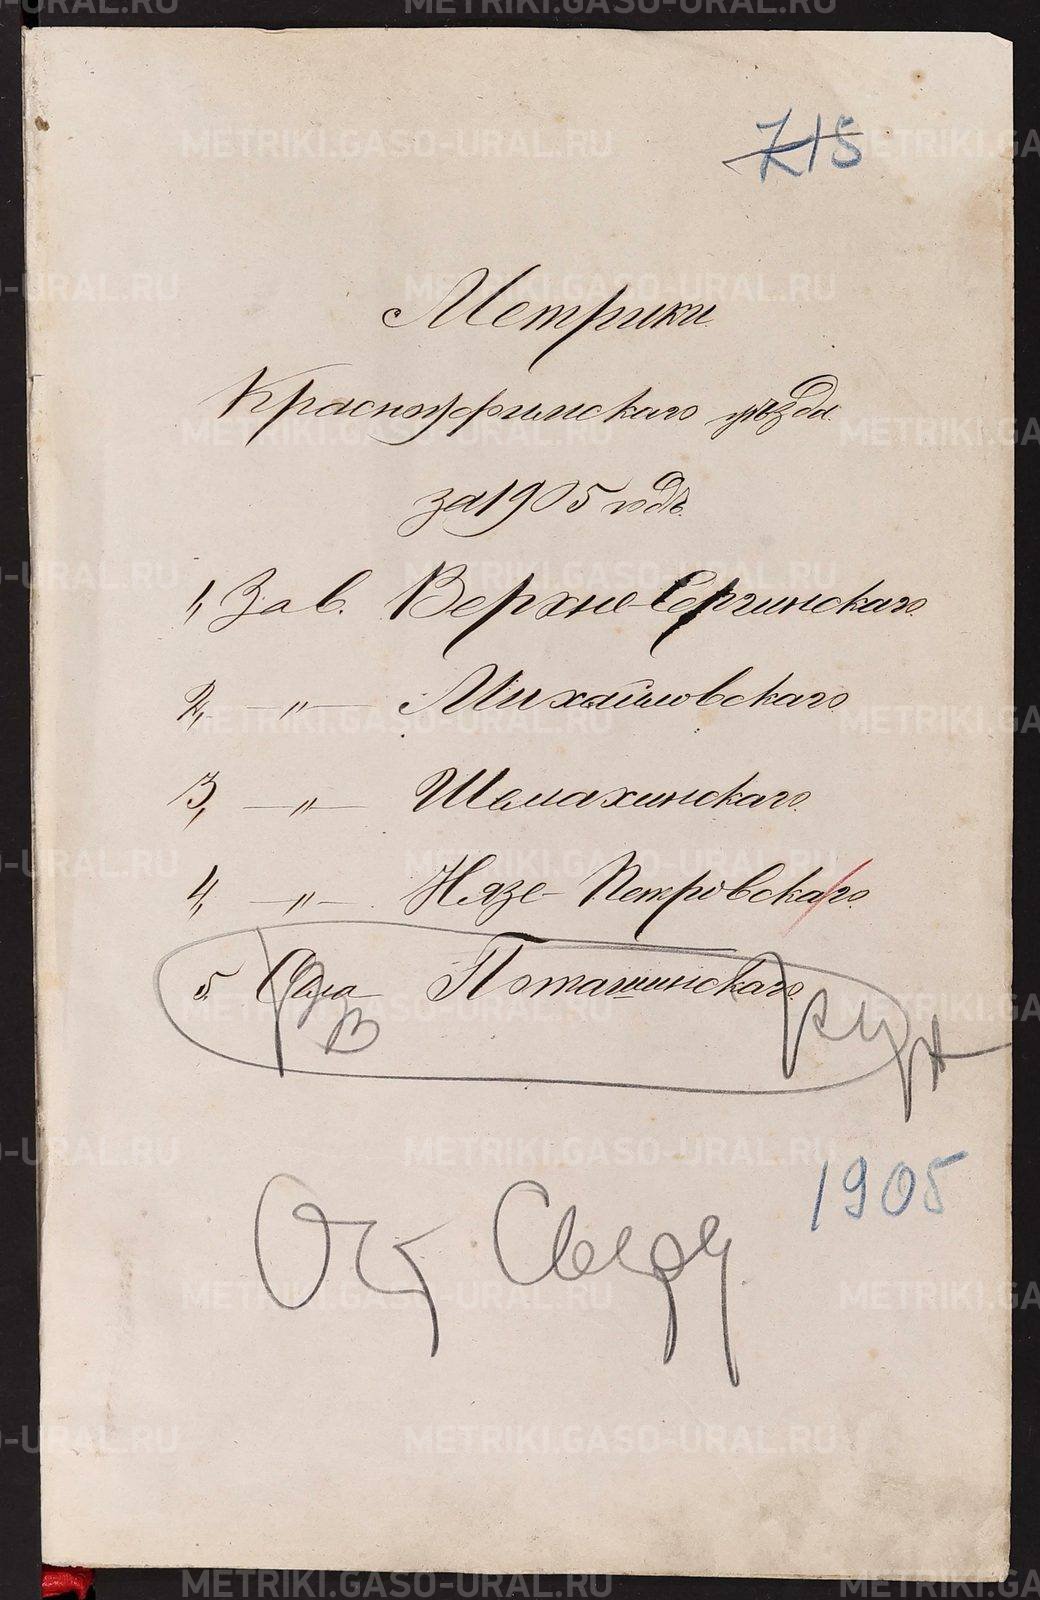 715
Метрики
Красноуфимскаго уѣзда
за 1905 годъ.
1, Зав. Верхне-Сергинскаго
2, —"— Михайловскаго
3, —"— Шемахинскаго
4, —"— Нязе-Петровскаго
5. Села Поташинскаго
В
1905
METRIKI.GASO-URAL.RU